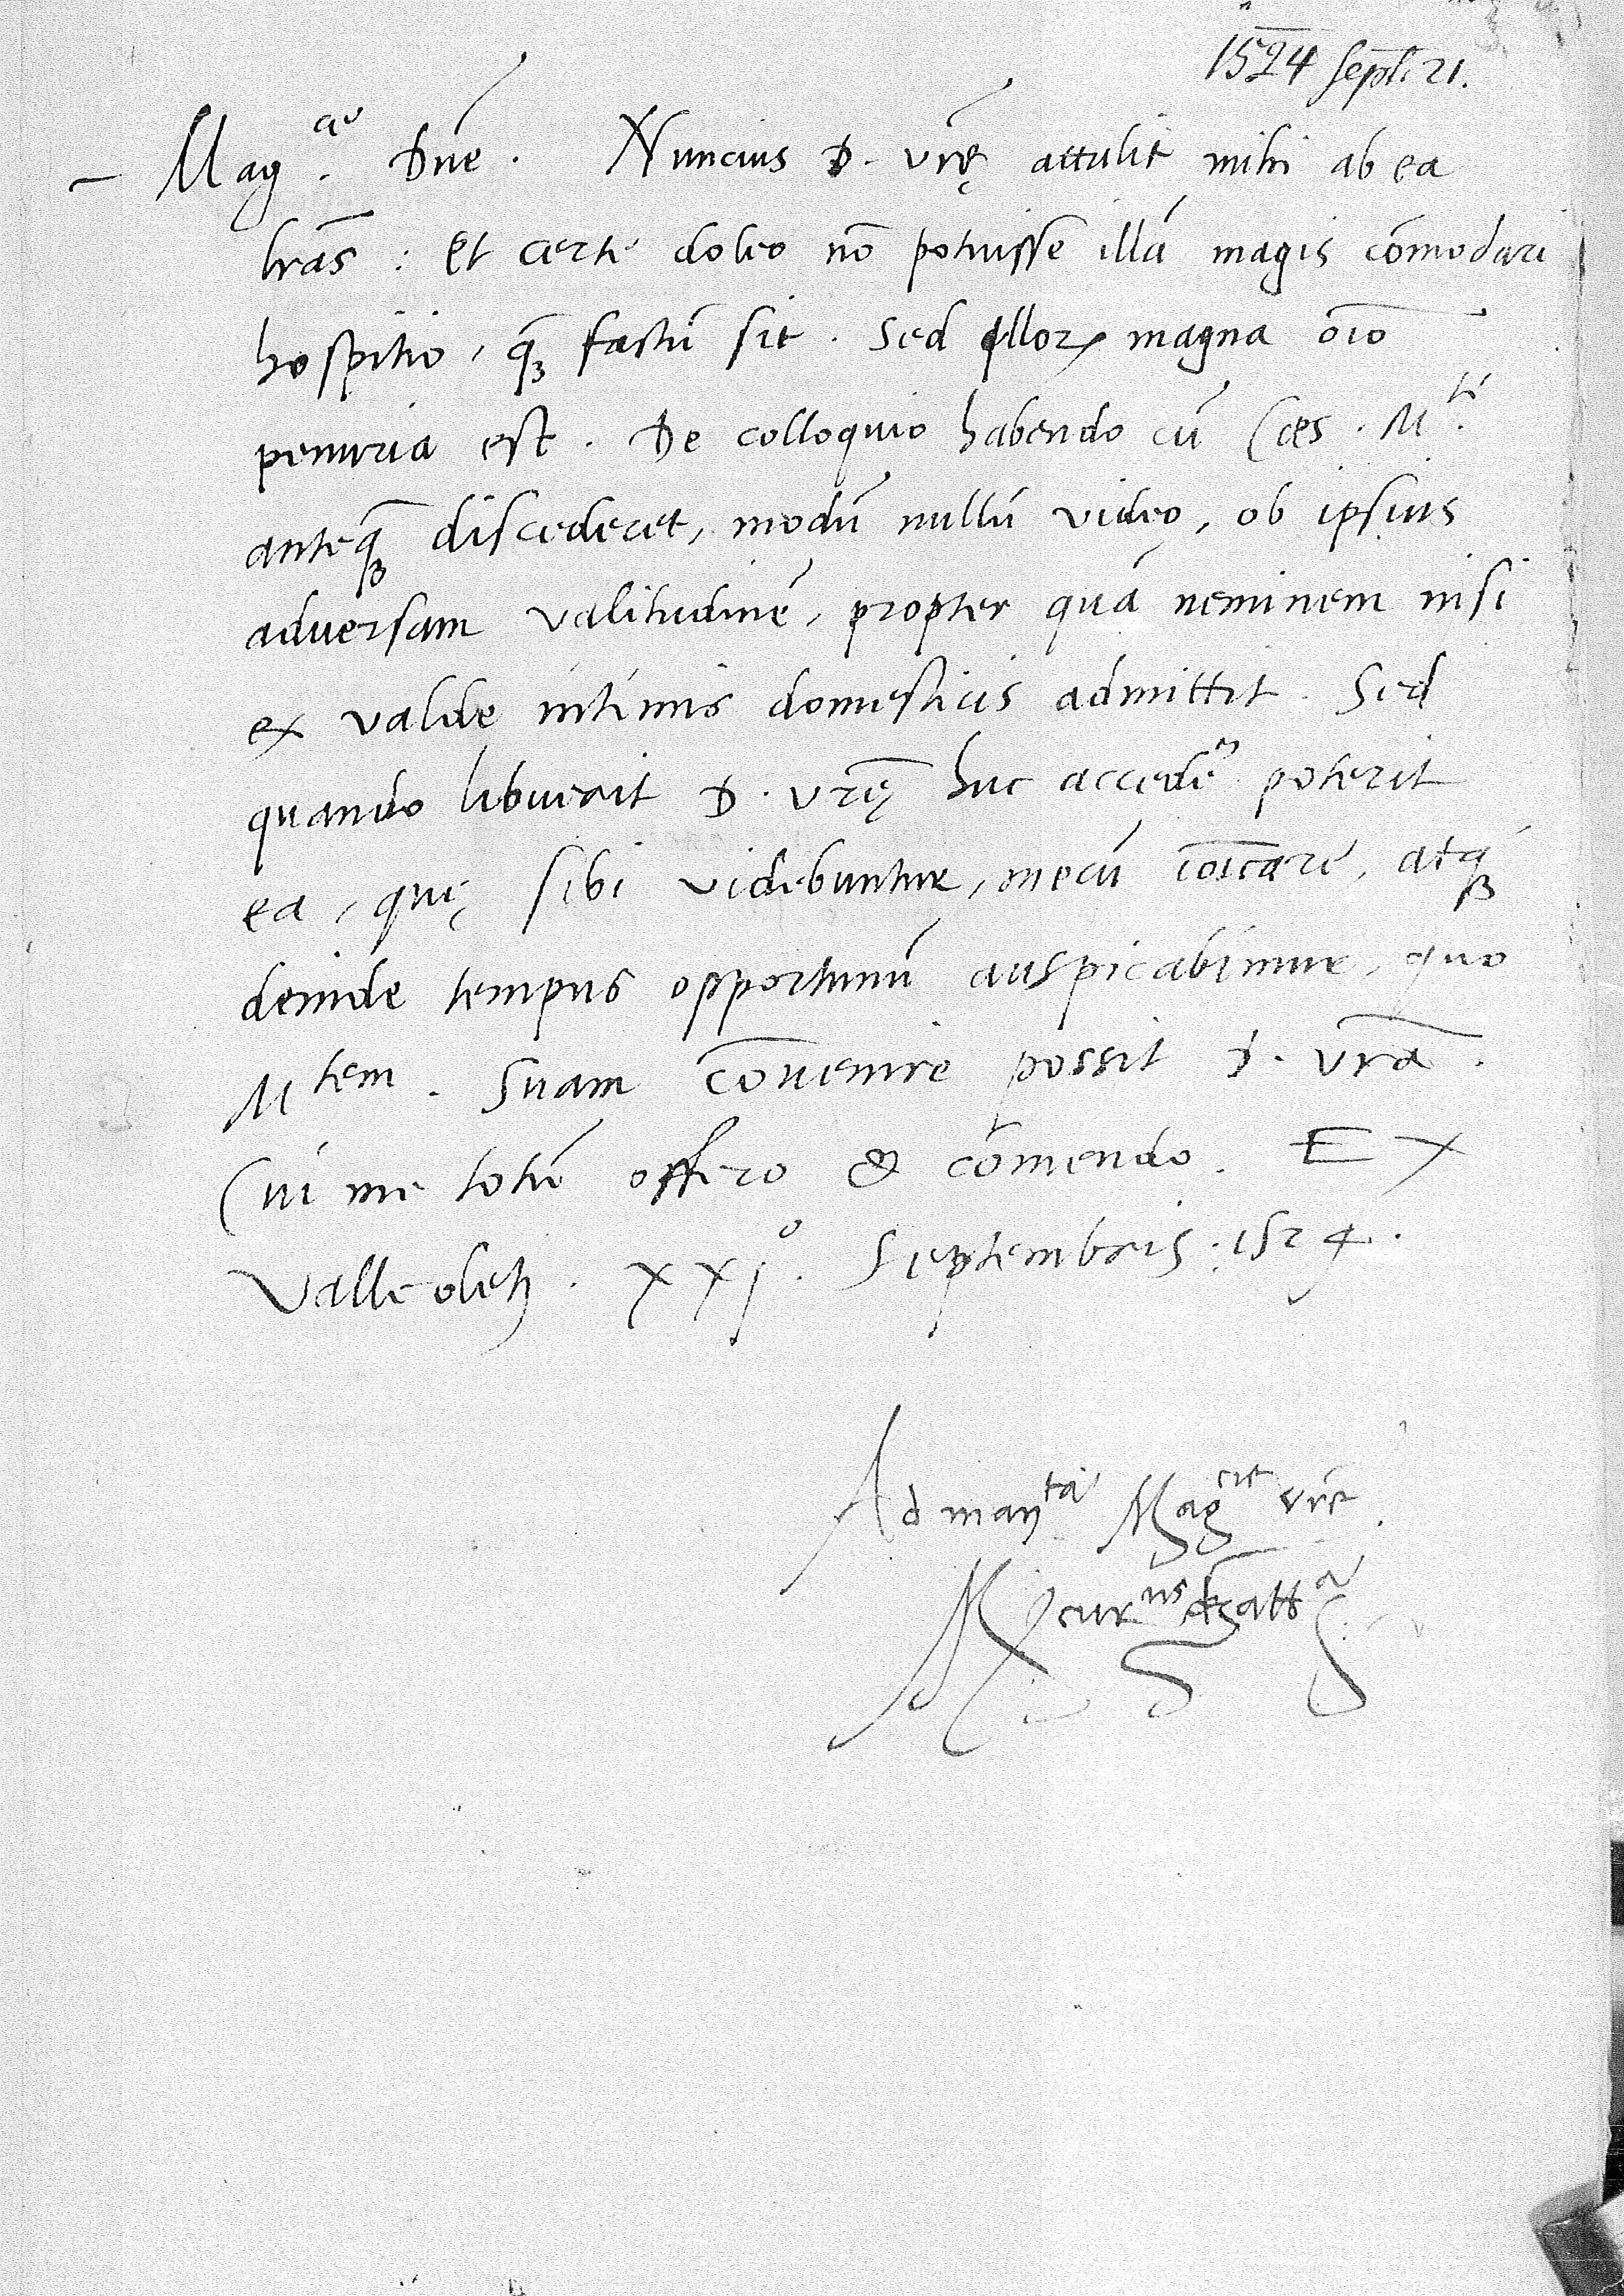 1524 Sept. 21.
Mag.ce Dn̄e. Nuncius D. vr̄ę attulit mihi ab ea
lr̄as: Et certe doleo nō potuisse illā magis cōmodari
hospitio, qꝫ factū sit. Sed illorꝝ magna oīo
penuria est. De colloquio habendo cū Cęs. M.ti
anteqꝫ discederet, modū nullū video, ob ipsius
adversam valitudinē, propter quā neminem nisi
ex valde intimis domesticis admittit. Sed
quando libuerit D. vr̄ę huc accedē poterit
ea, quę sibi videbuntur, mecū cōicare, atqꝫ
deinde tempus opportunū auspicabimur, quo
M tem. Suam cōvenire possit D. vrā.
Cui me totū offero & cōmendo. EX
Valleoletj. XXI.o Septembris. 1524.
Ad man ta Mag cie vr̄e.
Mercur us de Gatt a